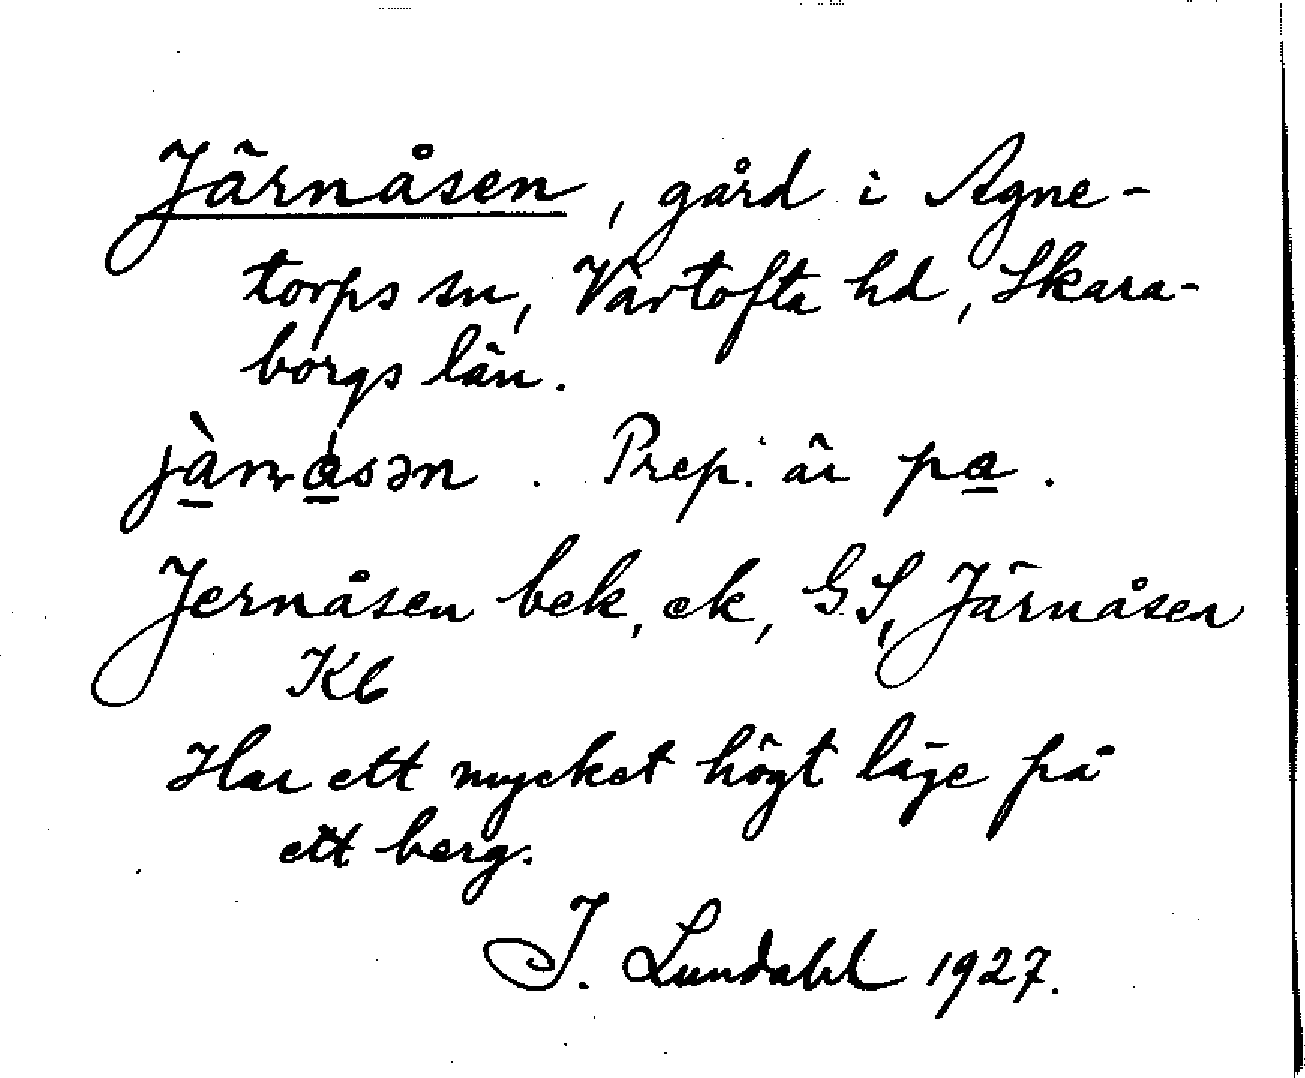 Järnåsen, gård i Agne-
torps sn, Vartofta hd, Skara-
borgs län.
Prep. är på.
Jernåsen bek, ek, GS, Järnåsen
Kb
Har ett mycket högt läge på
ett berg.
I. Lundahl 1927.